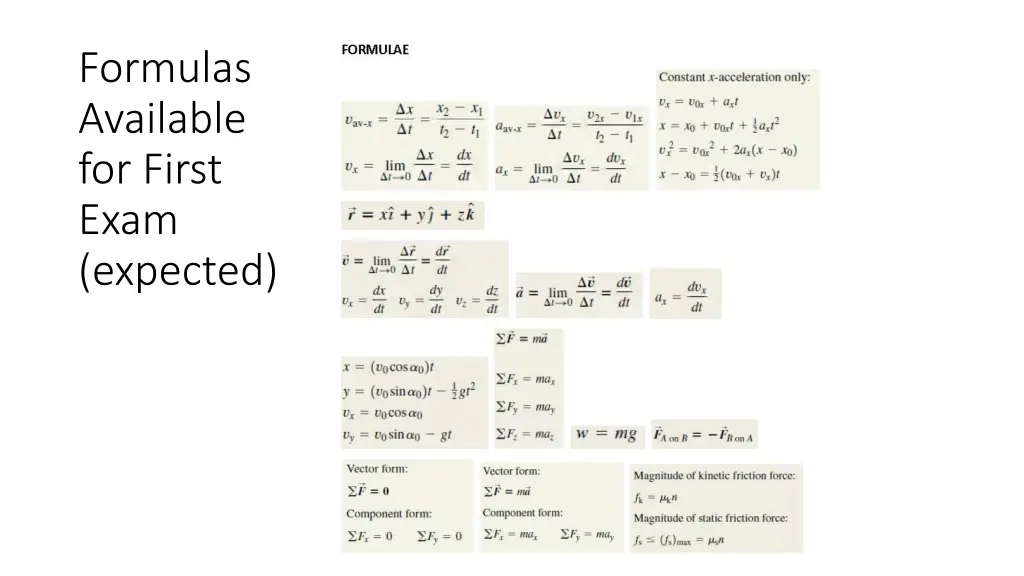 Formulas
Available
for First
Exam
(expected)
FORMULAE
v_av-x = Δx/Δt = (x₂ − x₁)/(t₂ − t₁)
v_x = lim_{Δt→0} Δx/Δt = dx/dt
a_av-x = Δv_x/Δt = (v₂ₓ − v₁ₓ)/(t₂ − t₁)
a_x = lim_{Δt→0} Δv_x/Δt = dv_x/dt
Constant x-acceleration only:
v_x = v₀ₓ + a_x t
x = x₀ + v₀ₓt + ½a_x t²
v_x² = v₀ₓ² + 2a_x(x − x₀)
x − x₀ = ½(v₀ₓ + v_x)t
r⃗ = xî + yĵ + zk̂
v⃗ = lim_{Δt→0} Δr⃗/Δt = dr⃗/dt
v_x = dx/dt v_y = dy/dt v_z = dz/dt
a⃗ = lim_{Δt→0} Δv⃗/Δt = dv⃗/dt
a_x = dv_x/dt
x = (v₀ cos α₀)t
y = (v₀ sin α₀)t − ½gt²
v_x = v₀ cos α₀
v_y = v₀ sin α₀ − gt
ΣF⃗ = ma⃗
ΣF_x = ma_x
ΣF_y = ma_y
ΣF_z = ma_z
w = mg
F⃗_A on B = −F⃗_B on A
Vector form:
ΣF⃗ = 0
Component form:
ΣF_x = 0 ΣF_y = 0
Vector form:
ΣF⃗ = ma⃗
Component form:
ΣF_x = ma_x ΣF_y = ma_y
Magnitude of kinetic friction force:
f_k = μ_k n
Magnitude of static friction force:
f_s ≤ (f_s)_max = μ_s n